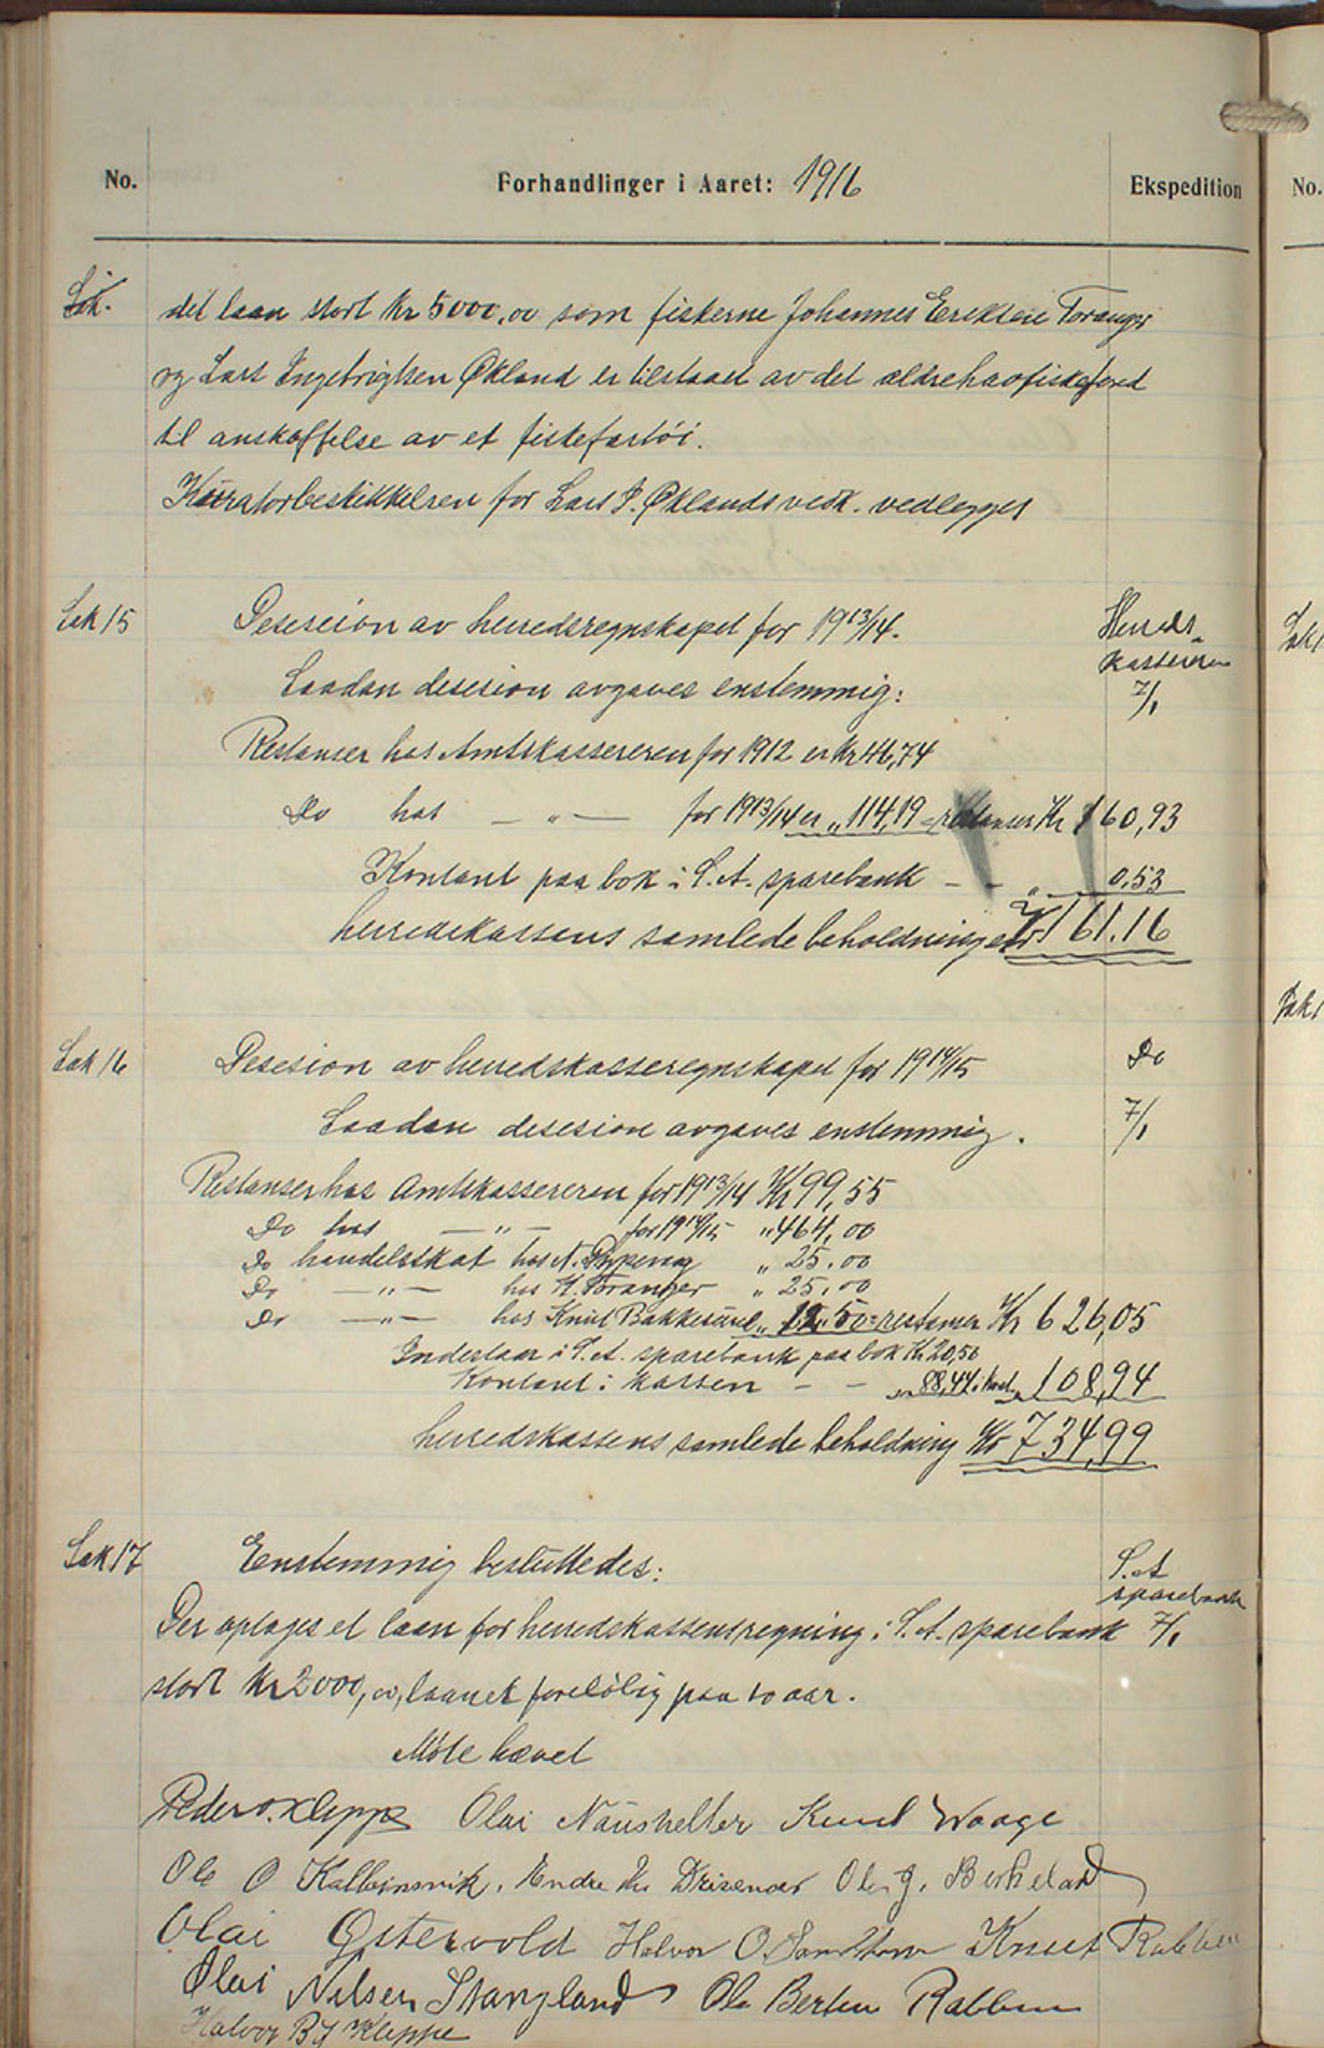 No.
Forhandlinger i Aaret: 1916
Ekspedition
No.
Sak.
det laan stort Kr 5000,00 som fiskerne Johannes Eriksen Toranger
og Lars Ingebrigtsen Økland er tilstaaet av det ældre havfiskefond
til anskaffelse av et fiskefartöi.
Kuratorbeskikkelsen for Lars I. Øklands vedk. vedlegges
Sak 15
Desesion av herredsregnskapet for 1913/14.
Herreds-
kassereren
7/1
Saadan desesion avgaves enstemmig:
Restanser hos Amtskassereren for 1912 er Kr 46,74
Do hos — " — for 1913/14 er „ 114,19 = restanser Kr 160,93
Kontant paa bok i S. A. sparebank - - „ 0,53
herredskassens samlede beholdning er Kr 161.16
Sak 16
Desesion av herredskasseregnskapet for 1914/15
Do
7/1
Saadan desesion avgaves enstemmig.
Restanser hos Amtskassereren for 1913/14 Kr 99,55
Do hos — " — for 1914/15 " 464,00
Do handelsskat hos A. „ 25,00
Do — " — hos H. Toranger " 25,00
Do — " — hos Knut Bakkesund „ 12,50 = restanser Kr 626,05
Indestaar i S. A. sparebank paa bok Kr 20,50
Kontant i kassen - - „ 88,44 „ 108,94
herredskassens samlede beholdning Kr 734,99
Sak 17
Enstemmig besluttedes:
S. A
sparebank
7/1
Der optages et laan for herredskassens regning i S. A. sparebank
stort Kr 2000,00, laanet foreløbig paa 10 aar.
Møte hævet
Peder O. Kleppe Olai Naustheller Knut Waage
Ole O Kalveinsvik. Endre Drisenes Ole J. Birkeland
Olai Østervold Halvor O. Sandtorv Knut Rabben
Olai Nilsen Stangeland Ole Berten Rabben
Halvor B Kleppe